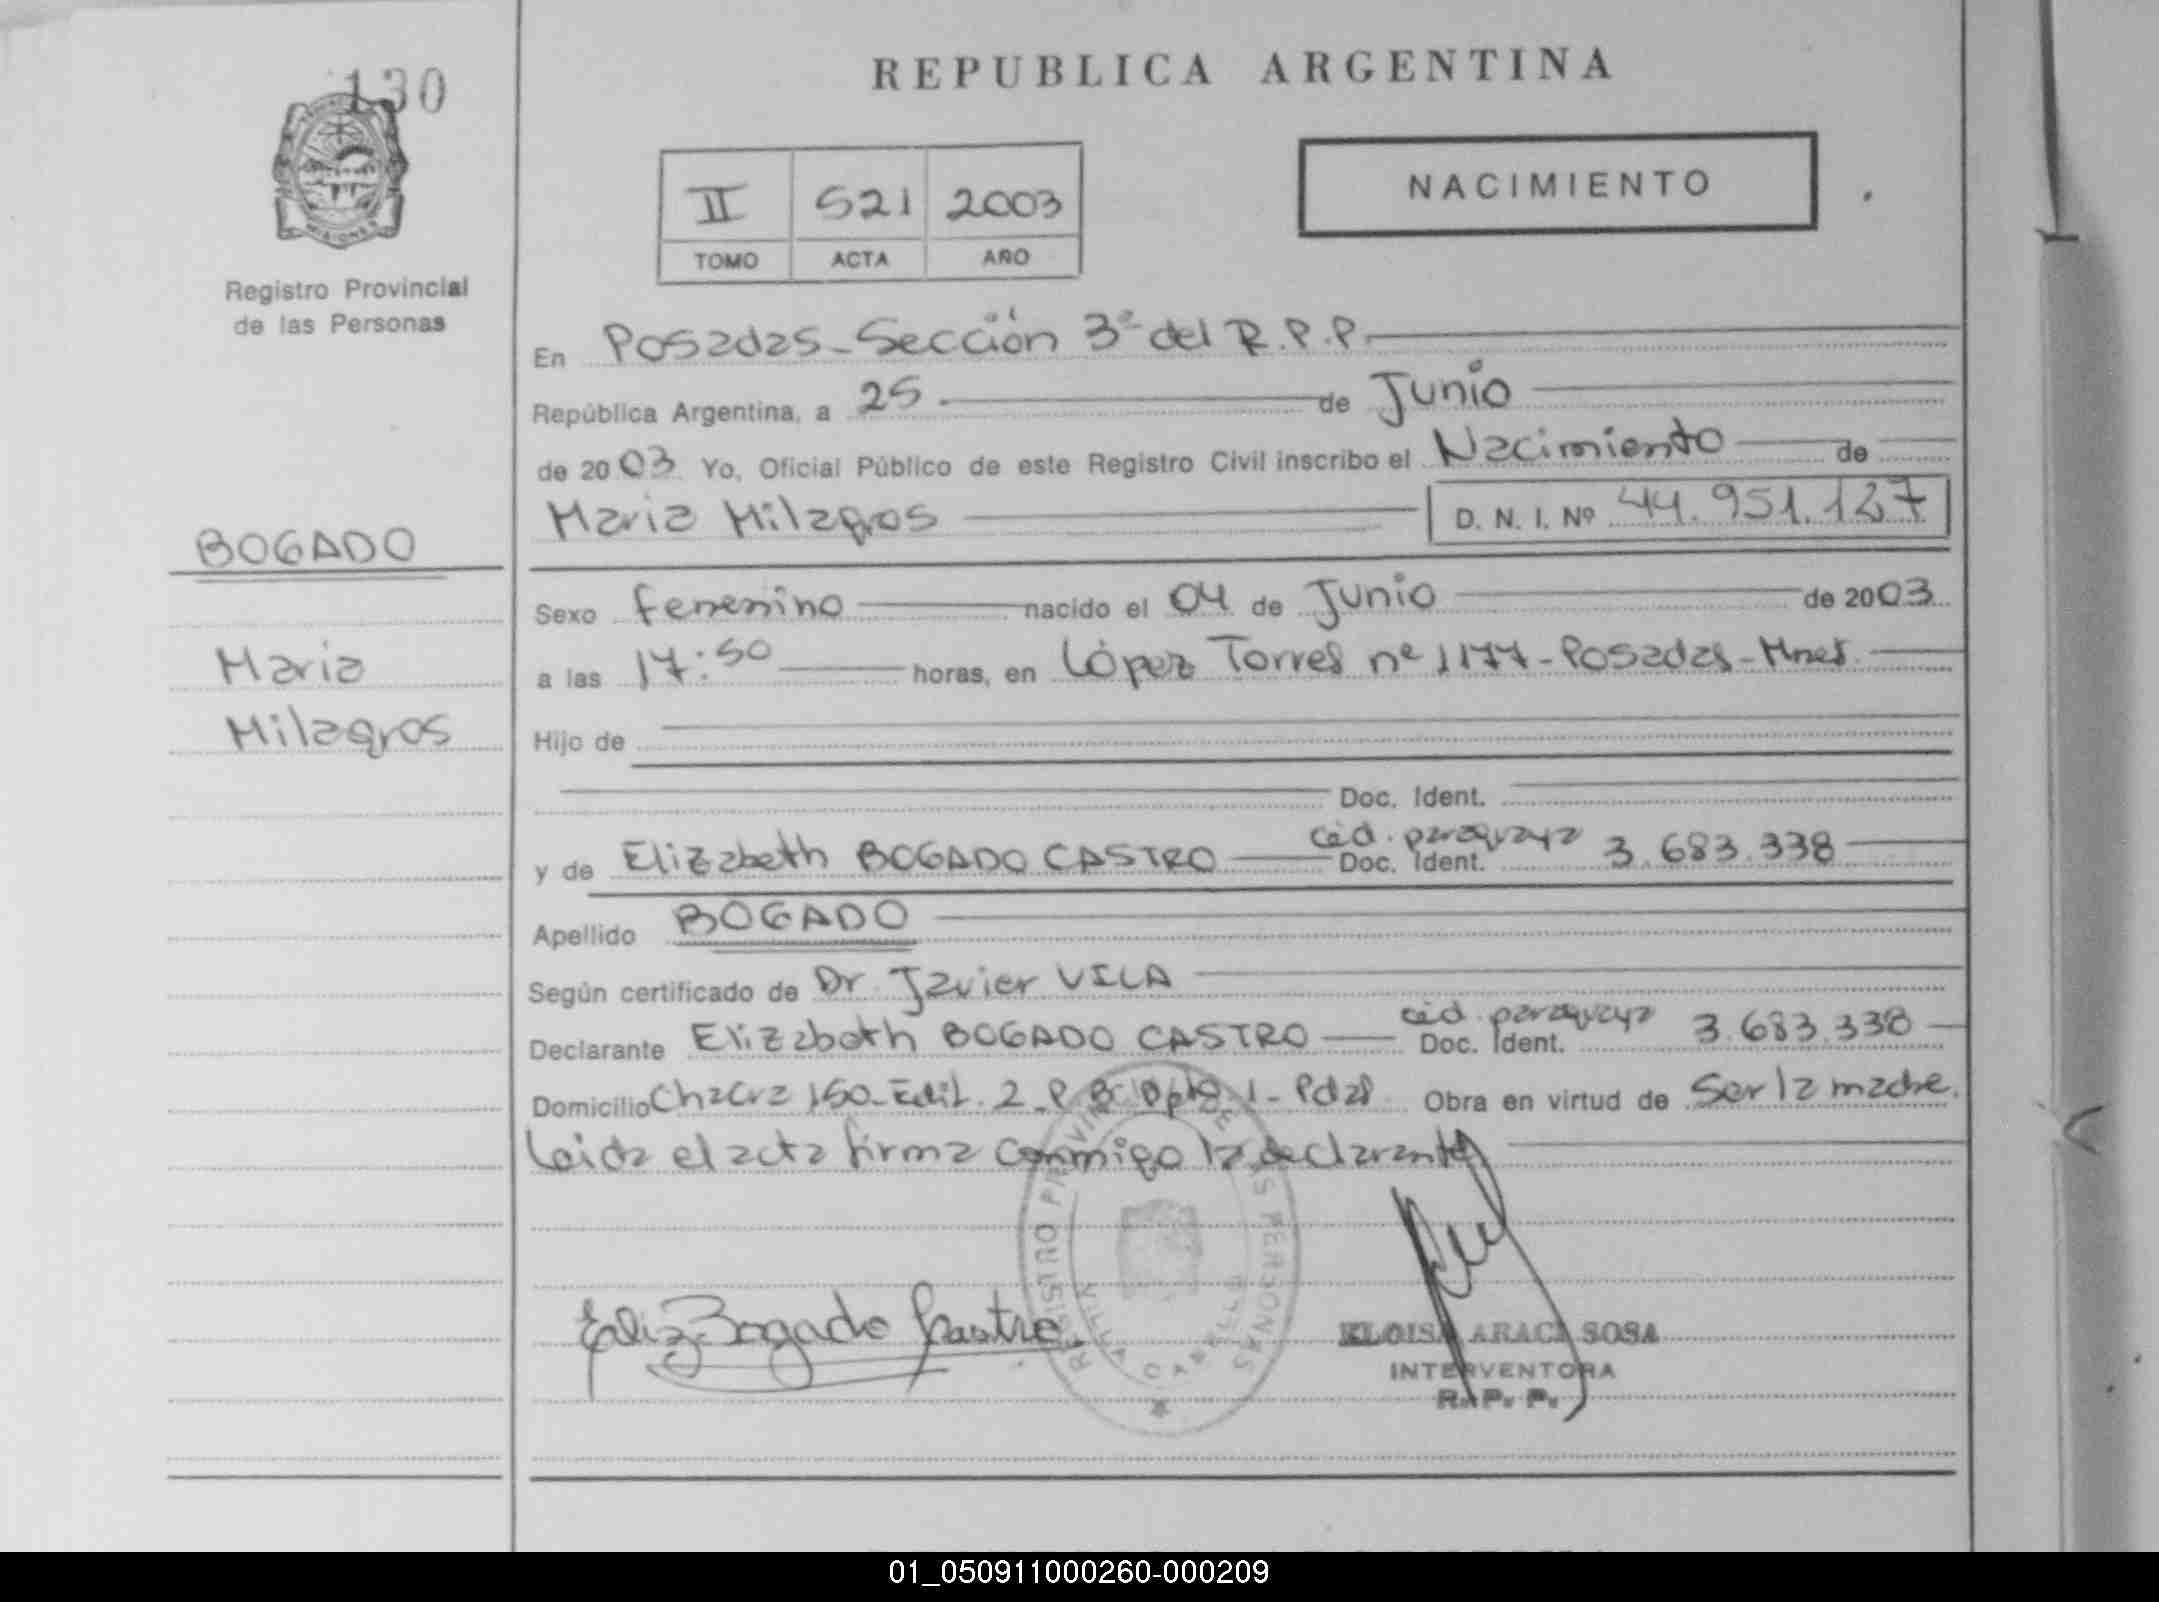 130
MISIONES
Registro Provincial
de las Personas
REPUBLICA ARGENTINA
II 521 2003
TOMO ACTA AÑO
NACIMIENTO
En Posadas - Sección 3ª del R.P.P.
República Argentina, a 25 de Junio
de 2003 Yo, Oficial Público de este Registro Civil inscribo el Nacimiento de
Maria Milagros D. N. I. Nº 44.951.127
BOGADO
Maria
Milagros
Sexo femenino nacido el 04 de Junio de 2003
a las 17:50 horas, en López Torres nº 1177 - Posadas - Mnes.
Hijo de
Doc. Ident.
y de Elizabeth BOGADO CASTRO Doc. Ident. céd. paraguaya 3.683.338
Apellido BOGADO
Según certificado de Dr. Javier VILA
Declarante Elizabeth BOGADO CASTRO Doc. Ident. céd. paraguaya 3.683.338
Domicilio Chacra 150 - Edif. 2 - P. B. Dpto. 1 - Pdas. Obra en virtud de Ser la madre.
Leida el acta firma conmigo la declarante
Eliz Bogado Castro
REGISTRO PROVINCIAL DE LAS PERSONAS
ELOISA ARACI SOSA
INTERVENTORA
R. P. P.
01_050911000260-000209